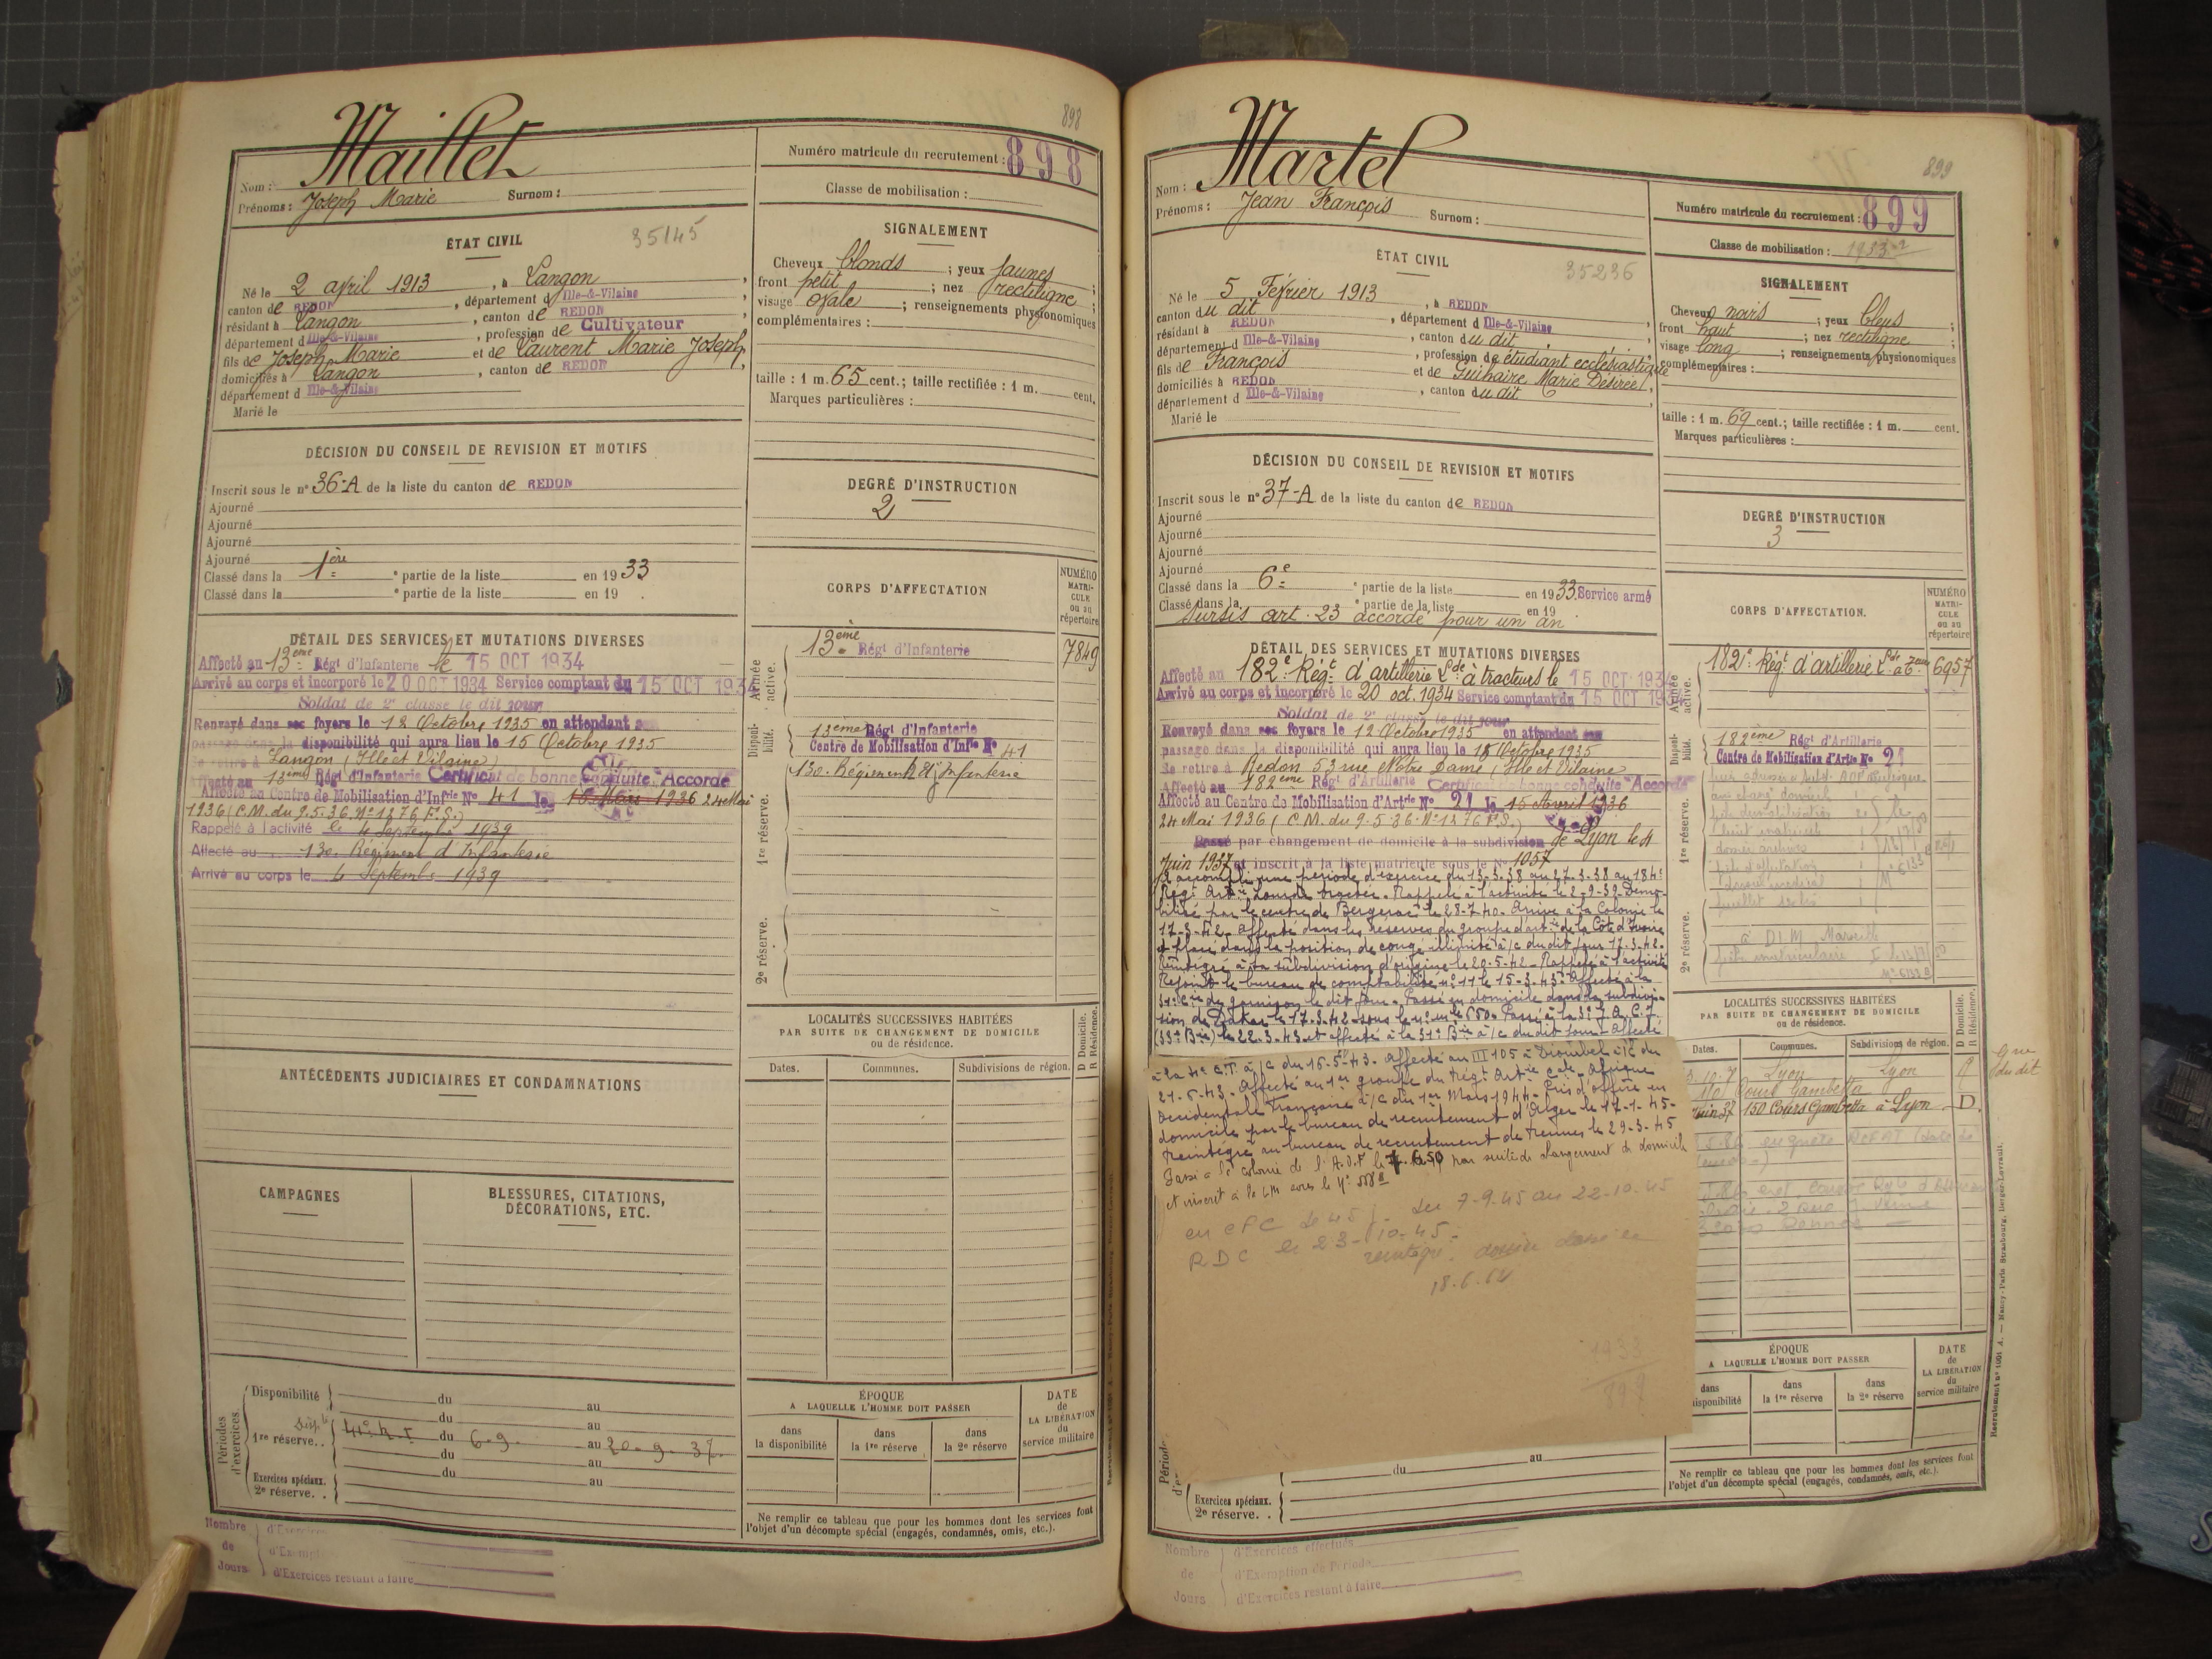 898
Nom : Maillet
Prénoms : Joseph Marie Surnom :
Numéro matricule du recrutement : 898
Classe de mobilisation :
ÉTAT CIVIL
35145
Né le 2 avril 1913, à Langon,
canton de REDON, département d Ille-&-Vilaine
résidant à Langon, canton de REDON
département d Ille-&-Vilaine, profession de Cultivateur
fils de Joseph Marie et de Laurent Marie Joseph,
domiciliés à Langon, canton de REDON,
département d Ille-&-Vilaine
Marié le
SIGNALEMENT
Cheveux blonds ; yeux jaunes ;
front petit ; nez rectiligne ;
visage ovale ; renseignements physionomiques
complémentaires :
taille : 1 m. 65 cent.; taille rectifiée : 1 m. cent.
Marques particulières :
DÉCISION DU CONSEIL DE REVISION ET MOTIFS
Inscrit sous le n° 36-A de la liste du canton de REDON
Ajourné
Ajourné
Ajourné
Ajourné
Classé dans la 1ère partie de la liste en 1933
Classé dans la e partie de la liste en 19 .
DEGRÉ D'INSTRUCTION
2
CORPS D'AFFECTATION
NUMÉRO MATRI-CULE ou au répertoire
Armée active.
13ème Régt d'Infanterie 7849
Disponibilité.
13ème Régt d'Infanterie
Centre de Mobilisation d'Infie N° 41
1re réserve.
130e Régiment d'Infanterie
2e réserve.
DÉTAIL DES SERVICES ET MUTATIONS DIVERSES
Affecté au 13ème Régt d'Infanterie le 15 OCT 1934
Arrivé au corps et incorporé le 20 OCT 1934 Service comptant du 15 OCT 1934
Soldat de 2e classe le dit jour
Renvoyé dans ses foyers le 12 Octobre 1935 en attendant s
passage dans la disponibilité qui aura lieu le 15 Octobre 1935
Se retire à Langon (Ille et Vilaine)
Affecté au 13ème Régt d'Infanterie Certificat de bonne conduite "Accordé
Affecté au Centre de Mobilisation d'Infrie N° 41 le 16 Mars 1936 24 Mai
1936 (C.M. du 9.5.36 N° 1276 F.S.)
Rappelé à l'activité le 4 Septembre 1939
Affecté au 130e Régiment d'Infanterie
Arrivé au corps le 4 Septembre 1939
ANTÉCÉDENTS JUDICIAIRES ET CONDAMNATIONS
CAMPAGNES
BLESSURES, CITATIONS, DÉCORATIONS, ETC.
LOCALITÉS SUCCESSIVES HABITÉES
PAR SUITE DE CHANGEMENT DE DOMICILE
ou de résidence.
D Domicile.
R Résidence.
Dates. Communes. Subdivisions de région.
Périodes d'exercices.
Disponibilité du au
du au
1re réserve. . du 6.9. au 20.9. 37
du au
Exercices spéciaux. 2e réserve. . du au
ÉPOQUE
A LAQUELLE L'HOMME DOIT PASSER
dans la disponibilité
dans la 1re réserve
dans la 2e réserve
DATE de LA LIBÉRATION du service militaire
Ne remplir ce tableau que pour les hommes dont les services font
l'objet d'un décompte spécial (engagés, condamnés, omis, etc.).
Nombre de Jours
d'Exercices
d'Exempt
d'Exercices restant à faire
899
Nom : Martel
Prénoms : Jean François Surnom :
Numéro matricule du recrutement : 899
Classe de mobilisation :
ÉTAT CIVIL
35236
Né le 5 Février 1913, à REDON
canton du dit, département d Ille-&-Vilaine,
résidant à REDON, canton du dit,
département d Ille-&-Vilaine, profession de étudiant ecclésiastique
fils de François et de Guihaire Marie Désirée,
domiciliés à REDON, canton du dit,
département d Ille-&-Vilaine
Marié le
SIGNALEMENT
Cheveux noirs ; yeux bleus ;
front haut ; nez rectiligne ;
visage long ; renseignements physionomiques
complémentaires :
taille : 1 m. 69 cent.; taille rectifiée : 1 m. cent.
Marques particulières :
DÉCISION DU CONSEIL DE REVISION ET MOTIFS
Inscrit sous le n° 37-A de la liste du canton de REDON
Ajourné
Ajourné
Ajourné
Ajourné
Classé dans la 6e partie de la liste en 1933. Service armé
Classé dans la e partie de la liste en 19
Sursis art. 23 accordé pour un an
DEGRÉ D'INSTRUCTION
3
CORPS D'AFFECTATION.
NUMÉRO MATRI-CULE ou au répertoire
Armée active.
182e Régt d'artillerie Lde 6957
Disponibilité.
182ème Régt d'Artillerie
Centre de Mobilisation d'Artie N° 21
1re réserve.
2e réserve.
à DIM Marseille
DÉTAIL DES SERVICES ET MUTATIONS DIVERSES
Affecté au 182e Régt d'artillerie Lde à tracteurs le 15 OCT 1934
Arrivé au corps et incorporé le 20 oct. 1934 Service comptant du 15 OCT 1934
Soldat de 2e classe le dit jour
Renvoyé dans ses foyers le 12 Octobre 1935 en attendant son
passage dans la disponibilité qui aura lieu le 15 Octobre 1935
Se retire à Redon 53 rue Notre Dame (Ille et Vilaine
Affecté au 182ème Régt d'Artillerie Certificat de bonne conduite "Accordé
Affecté au Centre de Mobilisation d'Artrie N° 21 le 15 Avril 1936
24 Mai 1936 (C.M. du 9.5.36. N° 1276 F.S.)
Passé par changement de domicile à la subdivision de Lyon le 4
Juin 1937 et inscrit à la liste matricule sous le N° 1057
A accompli une période d'exercice du 13-3-38 au 27-3-38 au 184e
Régt Artie Lourde tractée. Rappelé à l'activité le 2-9-39. Démo-
bilisé par le centre de Bergerac le 28-7-40. Arrivé à la Colonie le
17-3-42. Affecté dans les réserves du groupe d'artie de la Côte d'Ivoire
et placé dans la position de congé illimité à/c du dit jour 17-3-42.
Réintégré à sa subdivision d'origine le 20-5-42. Rappelé à l'activité
Rejoint le bureau de comptabilité n° 11 le 15-3-43. Affecté à la
31e Cie de garnison le dit jour. Passé en domicile dans la subdivi-
sion de Dakar le 17-3-42 sous le n° mle 550. Passé à la
(33e Bie) le 22-3-43 et affecté à la 31e Bie à/c du dit jour. Affecté
à la à/c du 16-5-43. Affecté au III 105 à Diourbel à/c du
21-5-43. Affecté au 1er groupe du Régt Artie Cale Afrique
Occidentale Française à/c du 1er Mars 1944. Pris d'office en
domicile par le bureau de recrutement d'Alger le 17-1-45-
Réintégré au bureau de recrutement de Rennes le 29-3-45
Passé à la colonie de l'A.O.F le par suite de changement de domicile
et inscrit à la LM sous le N°
en CFC du 7-9-45 au 22-10-45
RDC le 23-10-45.
18.6.62
1933
899
LOCALITÉS SUCCESSIVES HABITÉES
PAR SUITE DE CHANGEMENT DE DOMICILE
ou de résidence.
D Domicile.
R Résidence.
Dates. Communes. Subdivisions de région.
Lyon Lyon
Cours Gambetta
Juin 37 150 Cours Gambetta à Lyon D.
ÉPOQUE
A LAQUELLE L'HOMME DOIT PASSER
dans disponibilité
dans la 1re réserve
dans la 2e réserve
DATE de LA LIBÉRATION du service militaire
du au
Exercices spéciaux. 2e réserve. .
Ne remplir ce tableau que pour les hommes dont les services font
l'objet d'un décompte spécial (engagés, condamnés, omis, etc.).
Nombre de Jours
d'Exercices effectués
d'Exemption de Période
d'Exercices restant à faire
Recrutement n° 1001 A. — Nancy-Paris-Strasbourg, Berger-Levrault.